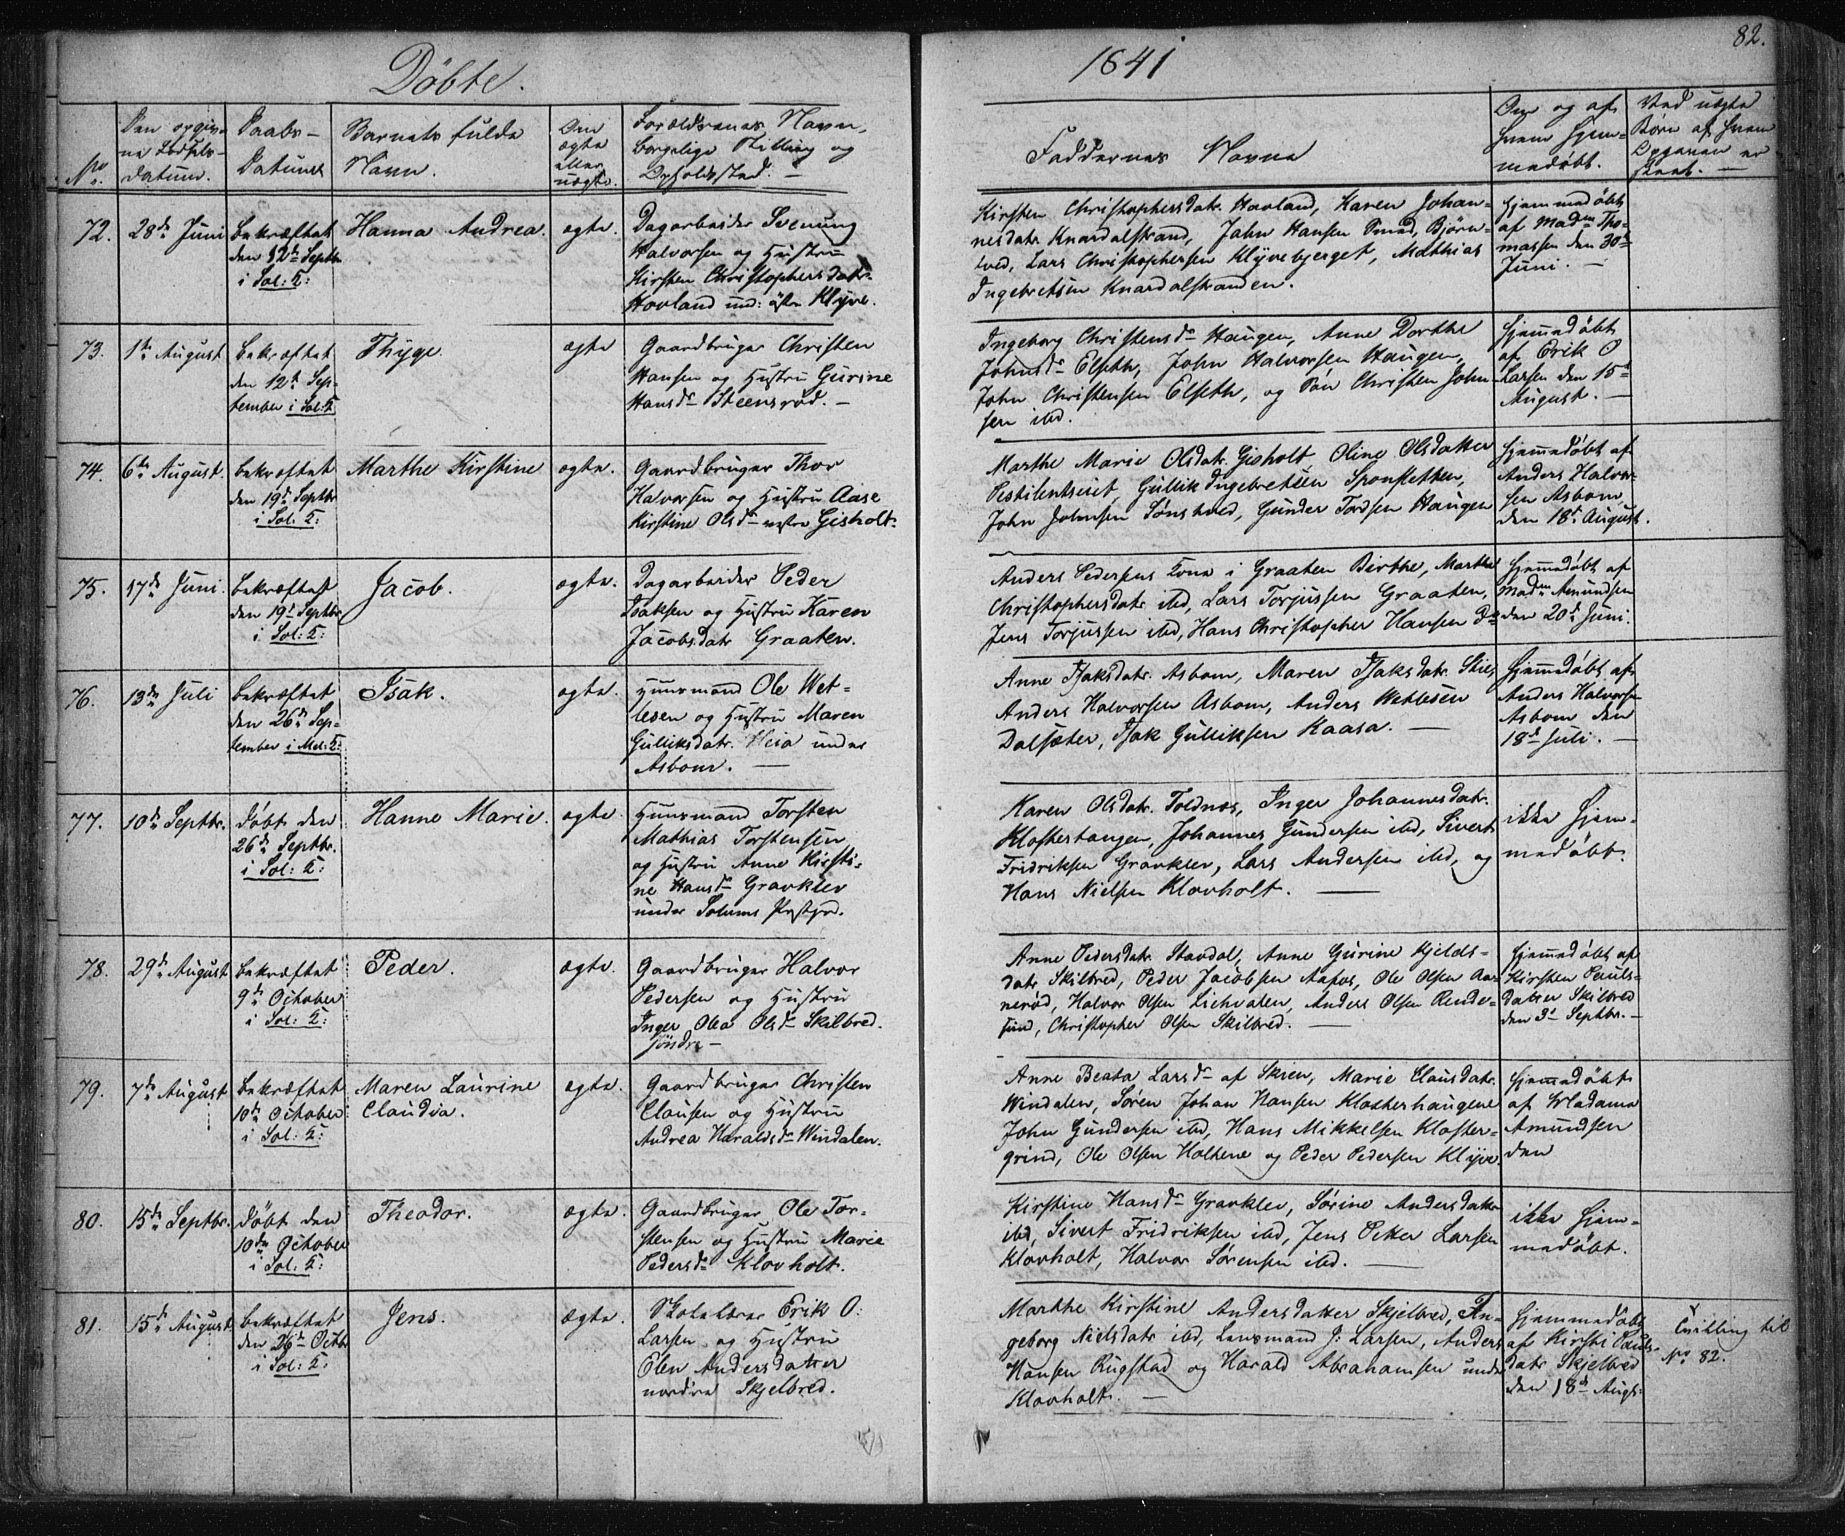 Döbte.
1841
82.
No
Den opgiv-
ne Fødsels-
datum.
Daabs-
Datum
Barnets fulde
Navn.
Om
ægte
eller
uægte.
Forældrenes Navn,
borgelige Stilling og
Opholdssted. -
Faddernes Navne
Om og af
hvem hjem-
medøbt.
Ved uægte
Børn af hvem
Opgaven er
skeet. -
72.
28de Juni
bekræftet
den 12te Septbr
i Sol: K:
Hanna Andrea.
ægte.
Dagarbeider Svenung
Halvorsen og Hustru
Kirsten Christophersdatr.
Hovland und: østre Klyve.
Kirsten Christophersdatr. Hovland, Karen Johan-
nesdatr Knardalstrand, John Hansen Smed, Björn-
tved, Lars Christophersen Klyvebjerget, Mathias
Ingebretsen Knardalstranden.
hjemmedøbt
af Madm Tho-
massen den 30te
Juni. -
73.
1te August
bekræftet
den 12te Sep-
tember i Sol: K
Thyge.
ægte
Gaardbruger Christen
Hansen og Hustru Gurine
Hansdr Steensrød. -
Ingeborg Christensdr Haugen, Anne Dorthe
Johnsdr Elseth, John Halvorsen Haugen,
John Christensen Elseth, og Søn Christen John
sen ibd.
hjemmedøbt
af Erik O
Larsen den 15de
August. -
74.
6te August.
bekræftet
den 19de Septbr
i Sol: K:
Marthe Kirstine
ægte.
Gaardbruger Thor
Halvorsen og Hustru Aase
Kirstine Olsdr vestre Gisholt.
Marthe Marie Olsdatr. Gisholt Oline Olsdatter
Pestilentseiet, Gullik Ingebretsen Sponsletten,
John Johnsen Sønstved, Gunder Tordsen Haugen
hjemmedøbt af
Anders Halvor-
sen Asbom,
den 18de August.
75.
17de Juni.
bekræftet
den 19de Septbr
i Sol: K:
Jacob.
ægte.
Dagarbeider Peder
Isaksen og Hustru Karen
Jacobsdatr Graaten.
Anders Pedersens Kone i Graaten Birthe, Marthe
Christophersdatr ibd, Lars Torjussen Graaten,
Jens Torjussen ibd, Hans Christopher Hansen do
hjemmedøbt af
Madm Amundsen
den 20de Juni.
76.
13de Juli
bekræftet
den 26de Sep-
tember i Mel: K:
Isak.
ægte.
Huusmand Ole Wet-
lesen og Hustru Maren
Gulliksdatr. Heia under
Asbom. -
Anne Isaksdatr. Asbom, Maren Isaksdatr.
Anders Halvorsen Asbom, Anders Wetlesen
Dalsæter, Isak Gulliksen Kaasa. -
hjemmedøbt af
Anders Halvorsen
Asbom den
18de Juli. -
77.
10de Septbr.
døbt den
26de Septbr.
i Sol: K:
Hanne Marie.
ægte.
Huusmand Torsten
Mathias Torstensen
og Hustru Anne Kirsti-
ne Hansdr Gravklev
under Solums Prstgd.
Karen Olsdatr. Toldnes, Inger Johannesdatr.
Klostertangen, Johannes Gundersen ibd, Sivert
Fridriksen Gravklev, Lars Andersen ibd, og
Hans Nielsen Klovholt. -
ikke hjem-
medøbt.
78.
29de August
bekræftet
9de October
i Sol: K:
Peder.
ægte.
Gaardbruger Halvor
Pedersen og Hustru
Inger Olea Olsdr Skilbred.
søndre -
Anne Pedersdatr. Stavdal, Anne Gurine Kjelds-
datr Skilbred, Peder Jacobsen Aafos, Ole Olsen Aa-
nerød, Halvor Olsen Lichvalen, Anders Olsen Rende-
sund, Christopher Olsen Skilbred. -
hjemmedøbt af
Kirsten Pauls-
datter Skilbred
den 3de Septbr. -
79.
7de August
bekræftet
10de October
i Sol: K:
Maren Laurine
Claudia.
ægte.
Gaardbruger Christen
Clausen og Hustru
Andrea Haraldsdr Windalen.
Anne Beata Larsdr af Skien, Marie Clausdatr.
Windalen, Søren Johan Hansen Klosterhaugene
John Gundersen ibd, Hans Mikkelsen Kloster-
grind, Ole Olsen Holtene og Peder Pedersen Klyve.
hjemmedøbt
af Madame
Amundsen
den
80.
15de Septbr.
døbt den
10de October
i Sol: K:
Theodor.
ægte.
Gaardbruger Ole Tor-
stensen og Hustru Marie
Pedersdr Klovholt.
Kirstine Hansdr Gravklev, Sørine Andersdatter
ibd, Sivert Fridriksen ibd, Jens Peter Larsen
Klovholt, Halvor Sørensen ibd. -
ikke hjem-
medøbt.
81.
15de August
bekræftet
den 26de Octbr
i Sol: K:
Jens.
Ægte.
Skolelærer Erik O:
Larsen og Hustru
Elen Andersdatter
nordre Skjelbred.
Marthe Kirstine Andersdatter Skjelbred, In-
geborg Nielsdatr ibd, Lensmand J: Larsen, Anders
Hansen Rugstad og Harald Abrahamsen under
Klovholt. -
hjemmedøbt
af Kirsti Pauls-
datr Skjelbred
den 18de Augst:
Tvilling til
No 82.